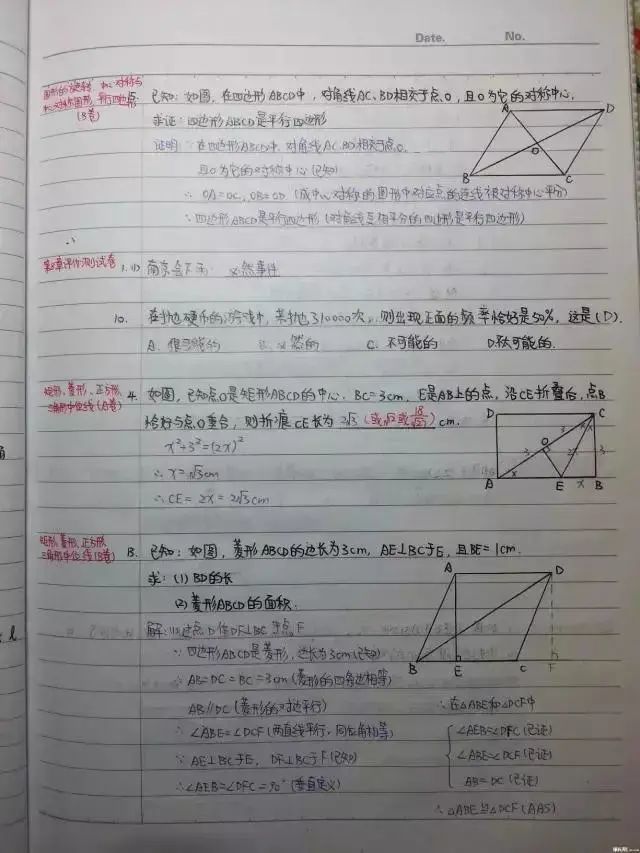 Date. No.
图形的旋转、中心对称与
中心对称图形、平行四边形
(B卷)
已知:如图,在四边形ABCD中,对角线AC、BD相交于点O,且O为它的对称中心.
求证:四边形ABCD是平行四边形
证明:∵在四边形ABCD中,对角线AC、BD相交于点O,
且O为它的对称中心(已知)
∴OA=OC,OB=OD(成中心对称的图形中对应点的连线被对称中心平分)
∴四边形ABCD是平行四边形(对角线互相平分的四边形是平行四边形)
A D
O
B C
第8章评价测试卷
1.(1) 南京会下雨 必然事件
10. 在抛掷硬币的游戏中,若抛掷10000次,则出现正面的频率恰好是50%,这是(D).
A.很可能的 B.必然的 C.不可能的 D.不太可能的.
矩形、菱形、正方形、
三角形中位线(A卷)
4. 如图,已知点O是矩形ABCD的中心,BC=3cm,E是AB上的点,沿CE折叠后,点B
恰好与点O重合,则折痕CE长为2√3(或√12或18/√27)cm.
x²+3²=(2x)²
∴x=√3cm
∴CE=2x=2√3cm
D C
O
3 3
3
x x
A E B
矩形、菱形、正方形、
三角形中位线(B卷)
13. 已知:如图,菱形ABCD的边长为3cm,AE⊥BC于E,且BE=1cm.
求:(1)BD的长
(2)菱形ABCD的面积.
解:(1)过点D作DF⊥BC于点F
∵四边形ABCD是菱形,边长为3cm(已知)
∴AB=DC=BC=3cm(菱形的四条边相等)
AB∥DC(菱形的对边平行)
∴∠ABE=∠DCF(两直线平行,同位角相等)
∵AE⊥BC于E,DF⊥BC于F(已知)
∴∠AEB=∠DFC=90°(垂直定义)
A D
B E C F
∴在△ABE和△DCF中
∠AEB=∠DFC(已证)
∠ABE=∠DCF(已证)
AB=DC(已证)
∴△ABE≌△DCF(AAS)